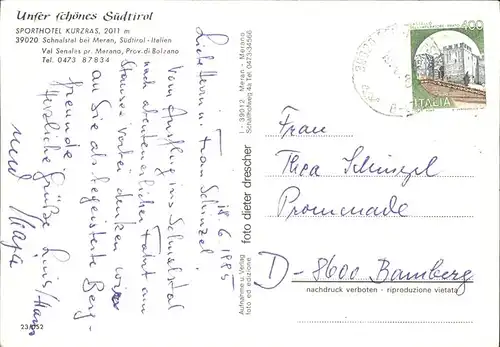 Unser schönes Südtirol
SPORTHOTEL KURZRAS, 2011 m
39020 Schnalstal bei Meran, Südtirol-Italien
Val Senales pr. Merano, Prov. di Bolzano
Tel. 0473 87834
18.6.1985
Liebe Herr u. Frau Schinzel!
Vom Ausflug ins Schnalstal
nach abenteuerlicher Fahrt am
Stausee vorbei denken wir
an Sie als begeisterte Berg-
freunde
Herzliche Grüße
und Maya
23/152
Aufnahme u. Verlag
foto ed edizione
foto dieter drescher
I - 39012 Meran - Merano
Schafferhofweg 4a Tel. 0473-34566
400
ITALIA
Frau
Thea Schinzel
Promenade
D-8600 Bamberg
nachdruck verboten - riproduzione vietata